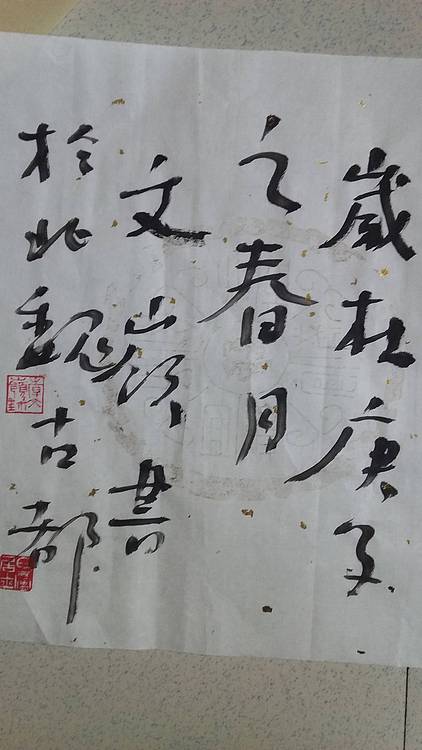 歲在庚子
之春月
文嶺書
於北魏古都